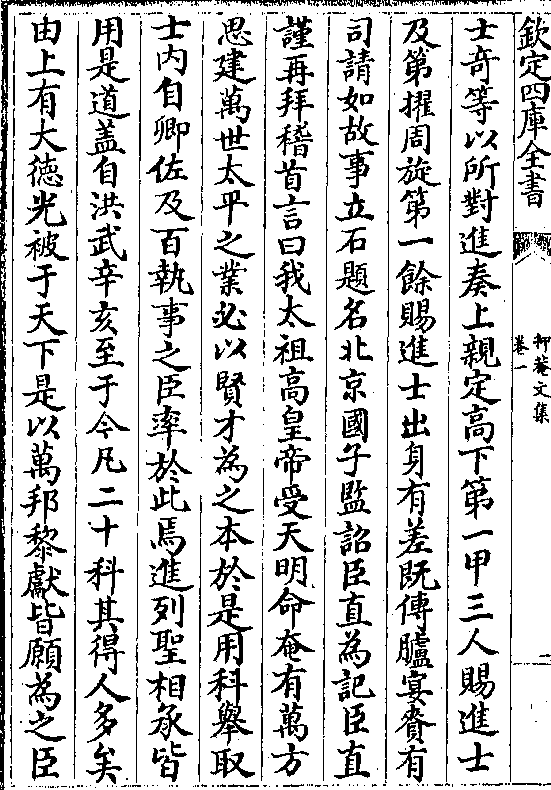 欽定四庫全書
抑菴文集
卷一
二
士奇等以所對進奏上親定高下第一甲三人賜進士
及第擢周旋第一餘賜進士出身有差既傳臚宴賚有
司請如故事立石題名北京國子監詔臣直為記臣直
謹再拜稽首言曰我太祖高皇帝受天明命奄有萬方
思建萬世太平之業必以賢才為之本於是用科舉取
士内自卿佐及百執事之臣率於此焉進列聖相承皆
用是道盖自洪武辛亥至于今凡二十科其得人多矣
由上有大德光被于天下是以萬邦黎獻皆願為之臣